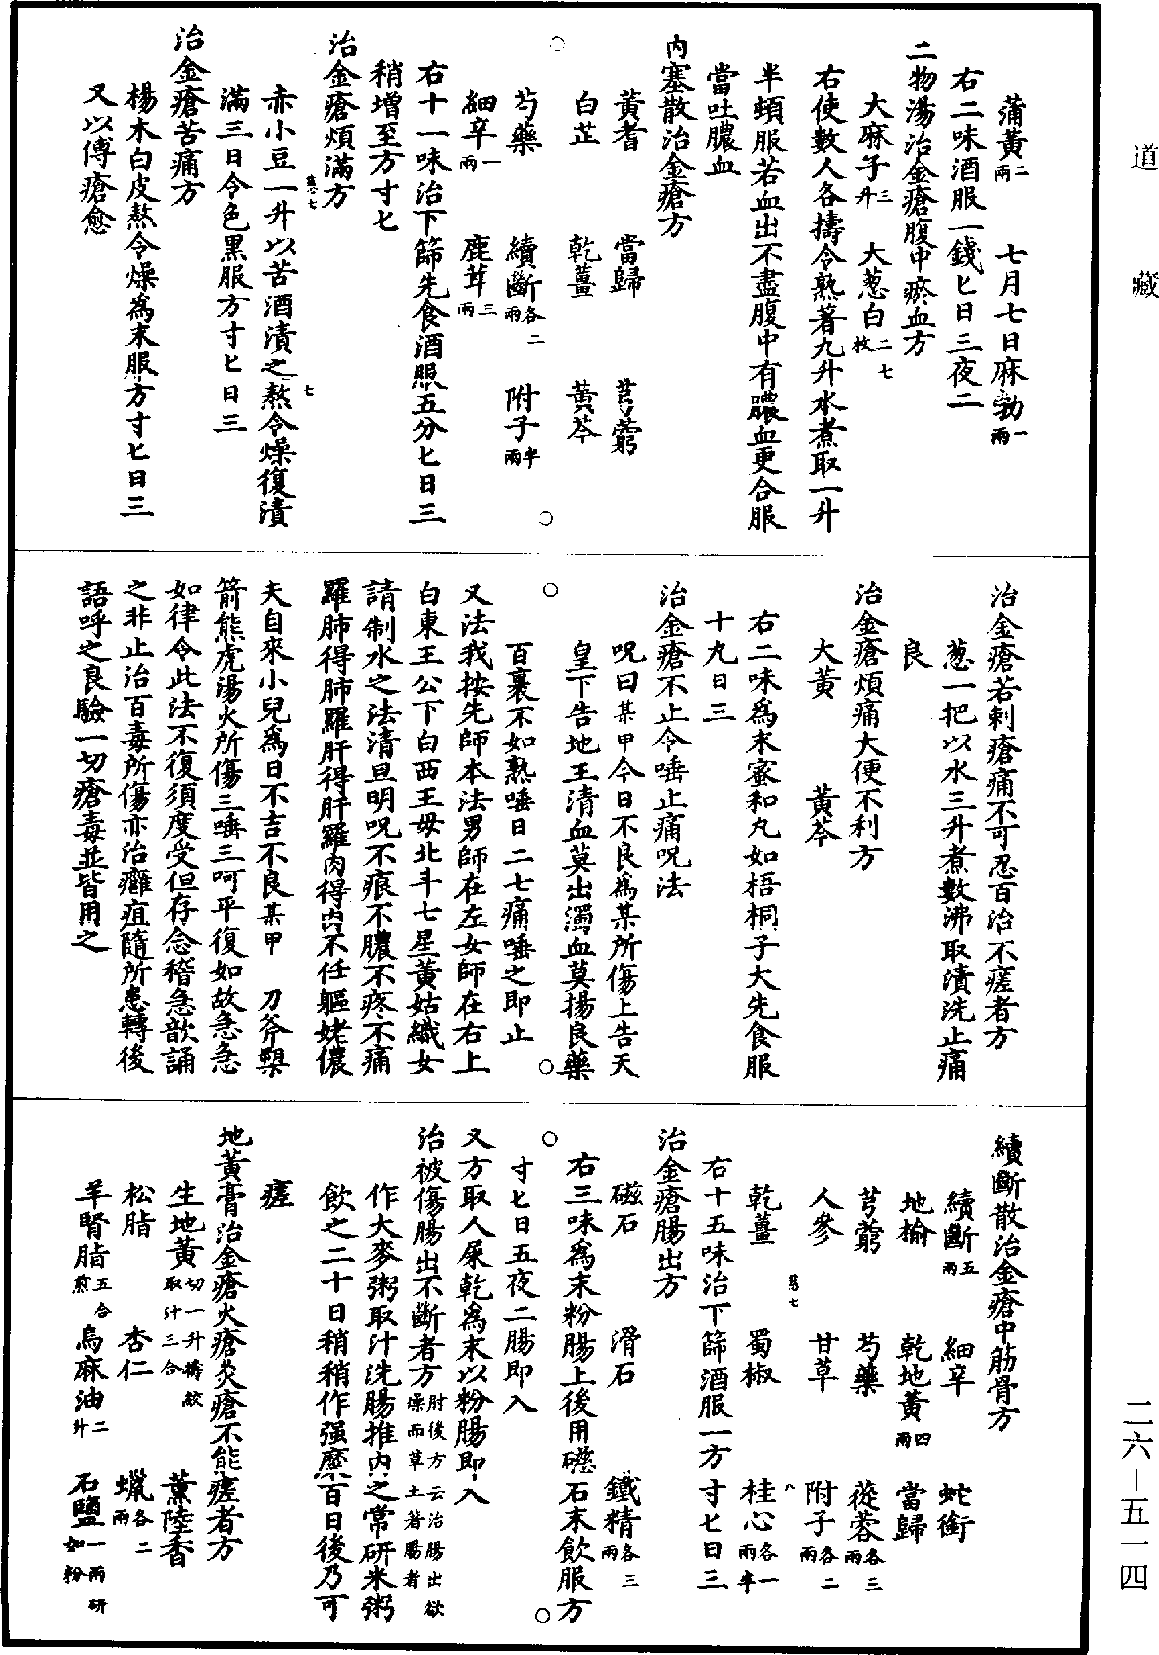 道藏
蒲黃二兩　七月七日麻勃一兩
右二味酒服一錢匕日三夜二
二物湯治金瘡腹中瘀血方
大麻子三升　大葱白二七枚
右使數人各擣令熟著九升水煮取一升
半頓服若血出不盡腹中有膿血更合服
當吐膿血
內塞散治金瘡方
黃耆　當歸　芎藭
白芷　乾薑　黃芩
芍藥　續斷各二兩　附子半兩
細辛一兩　鹿茸三兩
右十一味治下篩先食酒服五分匕日三
稍增至方寸匕
治金瘡煩滿方
赤小豆一升以苦酒漬之熬令燥復漬
滿三日令色黑服方寸匕日三
治金瘡苦痛方
楊木白皮熬令燥爲末服方寸匕日三
又以傅瘡愈
治金瘡若刺瘡痛不可忍百治不瘥者方
葱一把以水三升煮數沸取漬洗止痛
良
治金瘡煩痛大便不利方
大黃　黃芩
右二味爲末蜜和丸如梧桐子大先食服
十丸日三
治金瘡不止令唾止痛呪法
呪曰某甲今日不良爲某所傷上告天
皇下告地王清血莫出濁血莫揚良藥
百裹不如熟唾日二七痛唾之即止
又法我按先師本法男師在左女師在右上
白東王公下白西王母北斗七星黃姑織女
請制水之法清旦明呪不痕不膿不疼不痛
羅肺得肺羅肝得肝羅肉得肉不任軀姥儂
夫自來小兒爲日不吉不良某甲　刀斧槊
箭熊虎湯火所傷三唾三呵平復如故急急
如律令此法不復須度受但存念稽急歆誦
之非止治百毒所傷亦治癰疽隨所患轉後
語呼之良驗一切瘡毒並皆用之
續斷散治金瘡中筋骨方
續斷五兩　細辛　蛇銜
地榆　乾地黃四兩　當歸
芎藭　芍藥　蓯蓉各三兩
人參　甘草　附子各二兩
乾薑　蜀椒　桂心各一兩半
右十五味治下篩酒服一方寸匕日三
治金瘡腸出方
磁石　滑石　鐵精各三兩
右三味爲末粉腸上後用磁石末飲服方
寸匕日五夜二腸即入
又方取人屎乾爲末以粉腸即入
治被傷腸出不斷者方肘後方云治腸出欲燥而草土著腸者
作大麥粥取汁洗腸推內之常研米粥
飲之二十日稍稍作强糜百日後乃可
瘥
地黃膏治金瘡火瘡灸瘡不能瘥者方
生地黃切一升擣絞取汁三合　薰陸香
松脂　杏仁　蠟各二兩
羊腎脂五合煎　烏麻油二升　石鹽一兩研如粉
二六—五一四